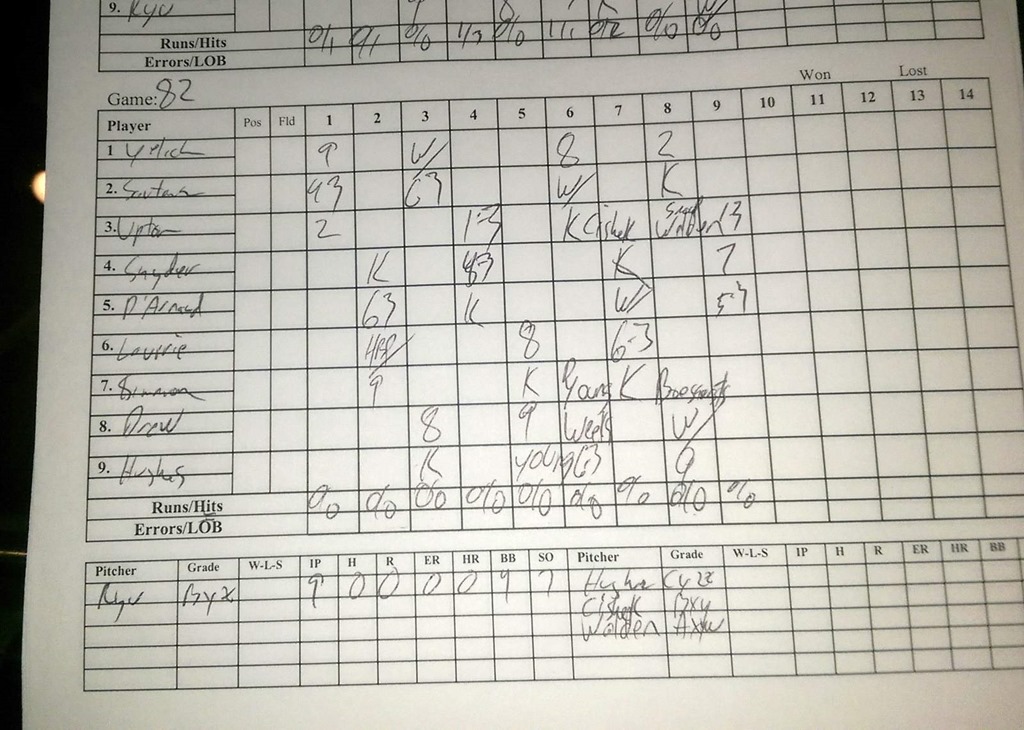 9. Ryu
Runs/Hits 0/1 0/1 0/0 1/3 0/0 1/1 0/2 0/0 0/0
Errors/LOB
Game: 82 Won Lost
Player Pos Fld 1 2 3 4 5 6 7 8 9 10 11 12 13 14
1 Yelich 9 W 8 2
2. 43 63 W K
3. Upton 2 1-3 K Cishek Walden 13
4. Snyder K 43 K 7
5. D'Arnaud 63 K W 5-3
6. Lawrie HBP 8 6-3
7. Simmon 9 K Young K
8. Drew 8 9 Weeks W
9. Hughes K Young 63 9
Runs/Hits 0/0 0/0 0/0 0/0 0/0 0/0 0/0 0/0 0/0
Errors/LOB
Pitcher Grade W-L-S IP H R ER HR BB SO Pitcher Grade W-L-S IP H R ER HR BB
Ryu Byz 9 0 0 0 0 9 7 Hughes
Cishek Bxy
Walden Axw